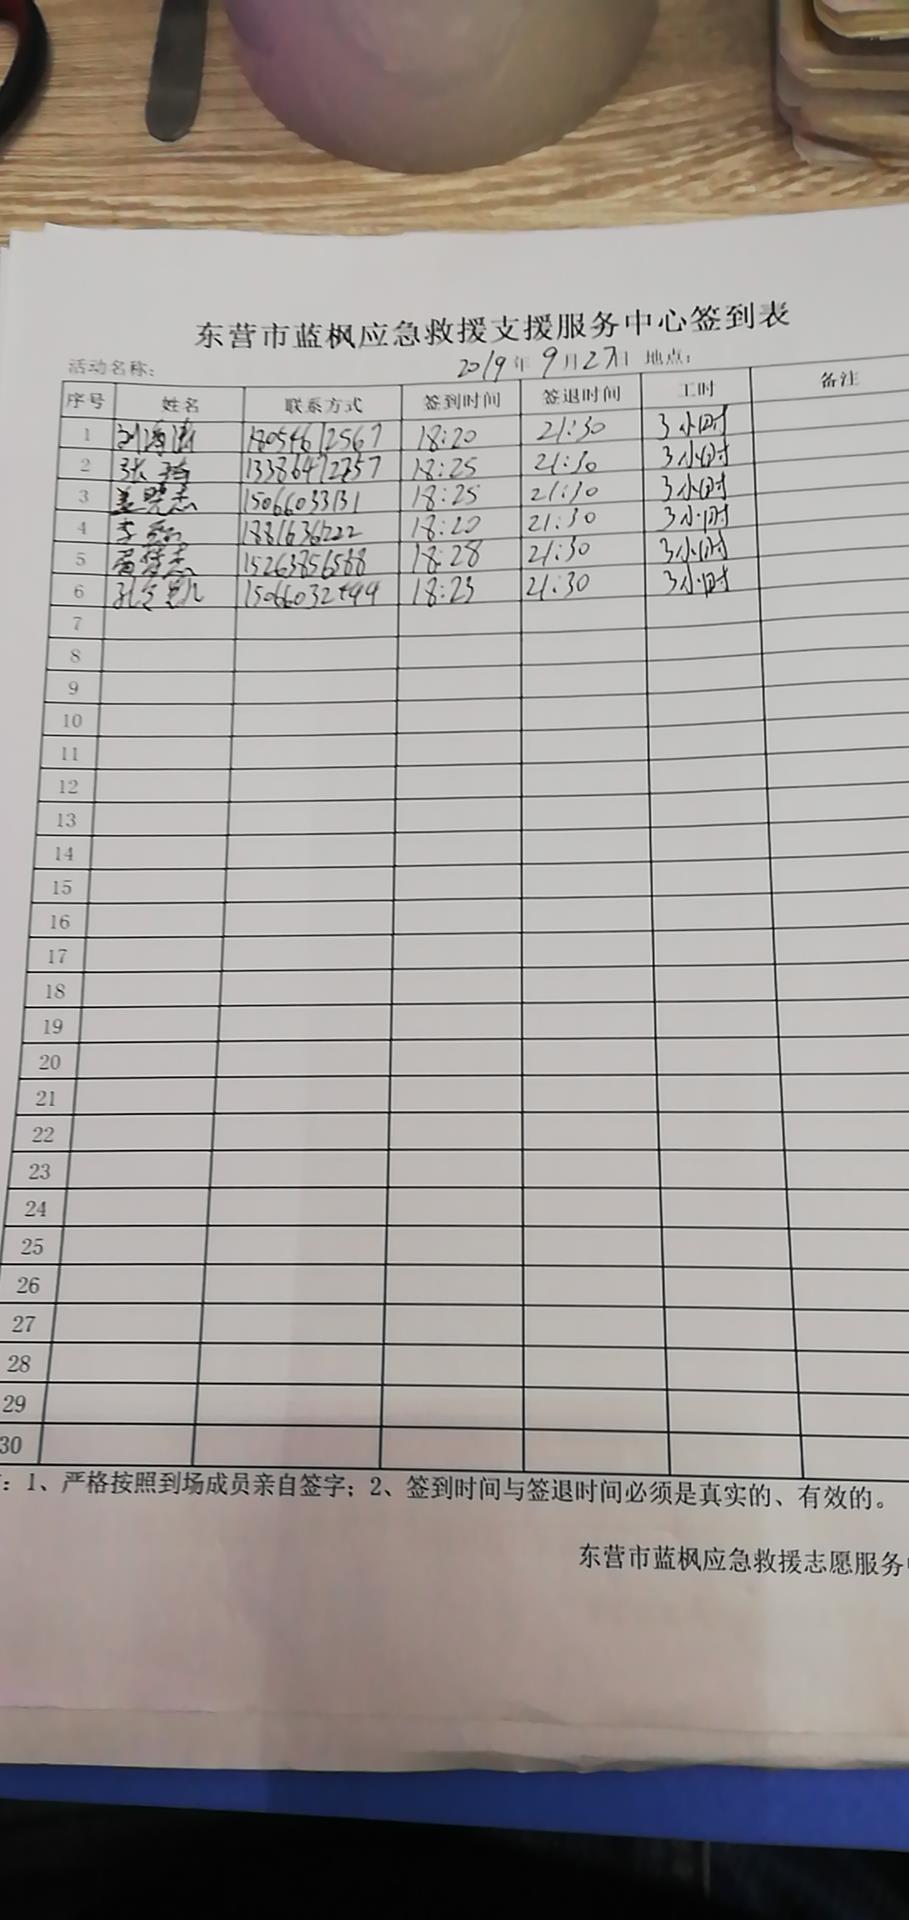 东营市蓝枫应急救援支援服务中心签到表
活动名称： 2019年9月27日 地点：
序号 姓名 联系方式 签到时间 签退时间 工时 备注
1 刘海涛 18054612567 18:20 21:30 3小时
2 张 18:25 21:30 3小时
3 姜晓志 15066033131 18:25 21:30 3小时
4 李 18:20 21:30 3小时
5 志 15263856568 18:28 21:30 3小时
6 孔令凯 18:23 21:30 3小时
7
8
9
10
11
12
13
14
15
16
17
18
19
20
21
22
23
24
25
26
27
28
29
30
：1、严格按照到场成员亲自签字；2、签到时间与签退时间必须是真实的、有效的。
东营市蓝枫应急救援志愿服务